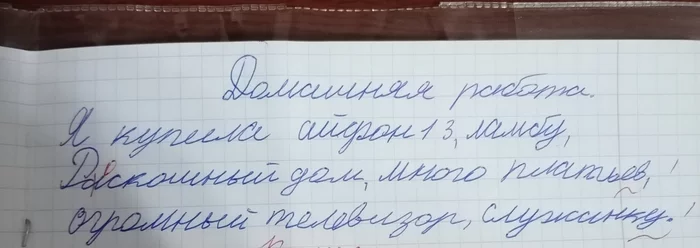 Домашняя работа.
Я купила айфон 13, ламбу,
Роскошный дом, много платьев,
огромный телевизор, служанку.